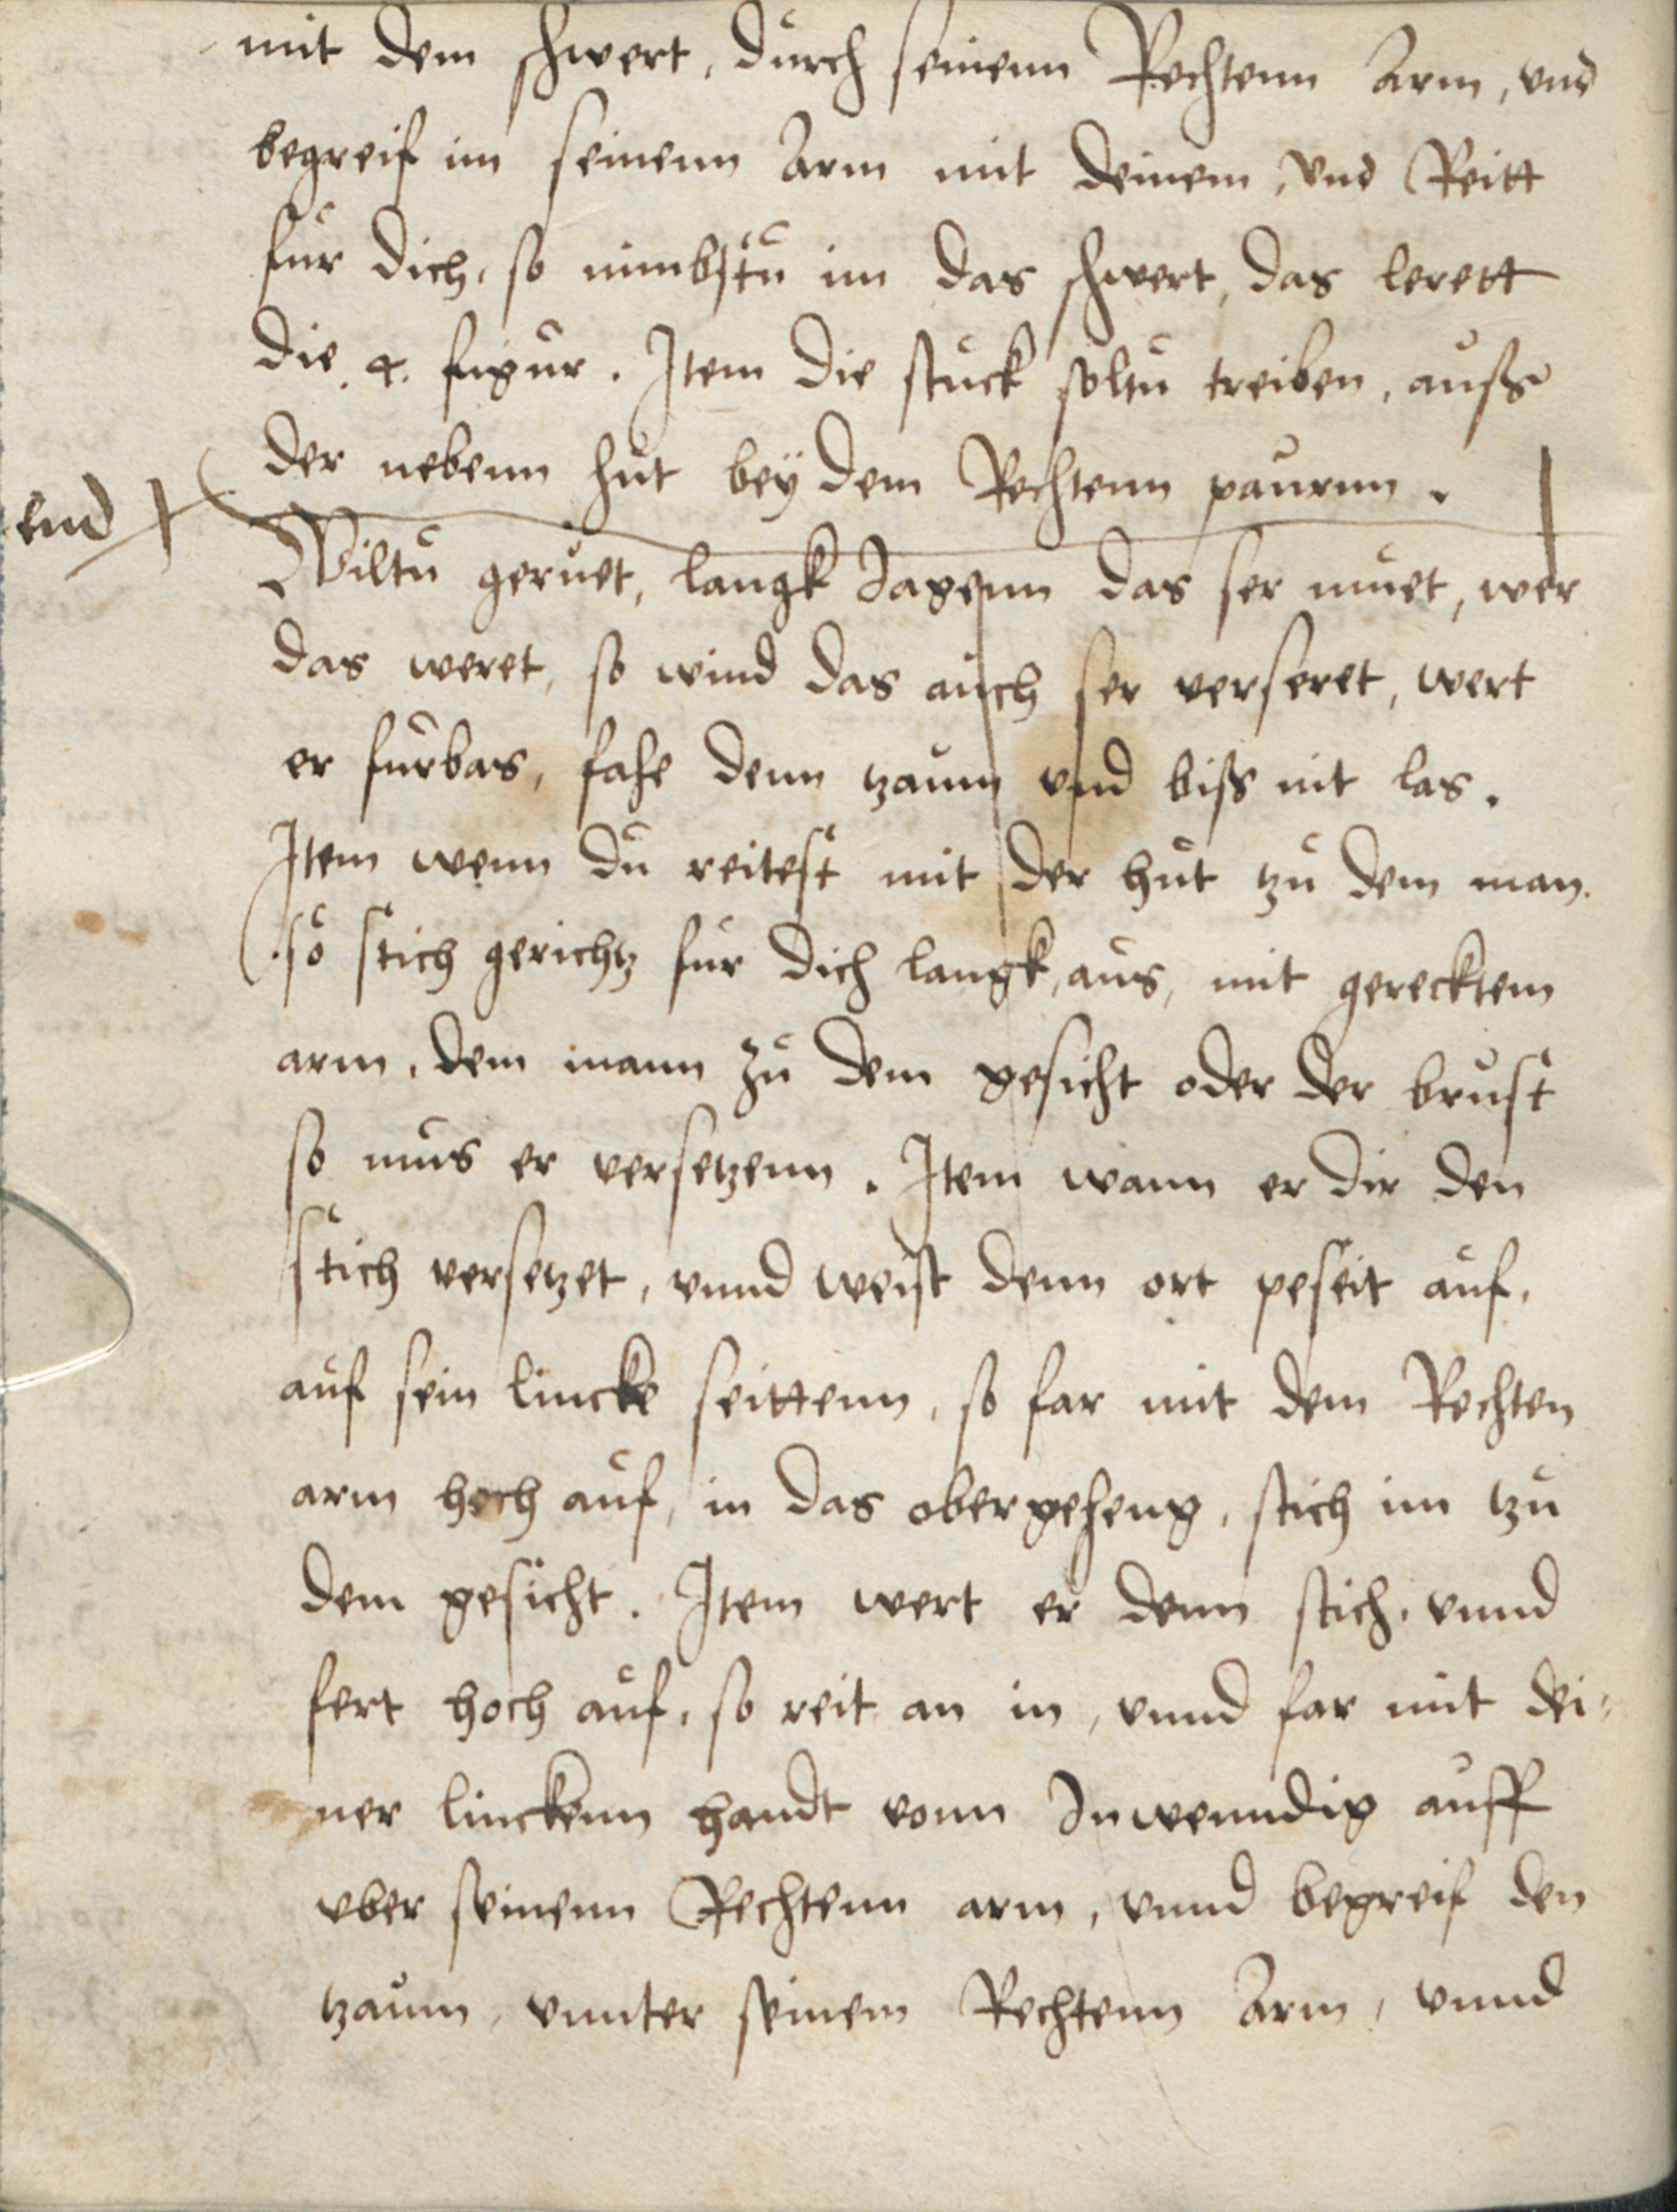 mit dem schwert, durch seinenn Rechtenn Arm, vnd
begreif im seinenn Arm mit deinem, vnd Reitt
fur dich, so nimbstu im das schwert, das lerett
die .4. figur. Item die stuck soltu treiben, auß
der nebenn hut bey dem Rechtenn paurnn.
end
Wiltu geruet, langk Jagenn das ser muet, wer
das weret, so wind das auch ser verseret, wert
er furbas, fahe denn tzaum vnd biß nit las.
Item wenn du reitest mit der hut tzu dem man.
so stich gerichtz fur dich langk, aus, mit gerecktem
arm, dem mann zu dem gesicht oder der brust
so mus er versetzenn. Item wann er dir den
stich versetzet, vnnd weist denn ort peseit auf,
auf sein lincke seittenn, so far mit dem Rechten
arm hoch auf, in das obergeheng, stich im tzu
dem gesicht. Item wert er denn stich, vnnd
fert hoch auf, so reit an in, vnnd far mit dei-
ner linckenn handt vonn Inwenndig auff
vber seinenn Rechtenn arm, vnnd begreif den
tzaum, vnnter seinem Rechtenn Arm, vnnd